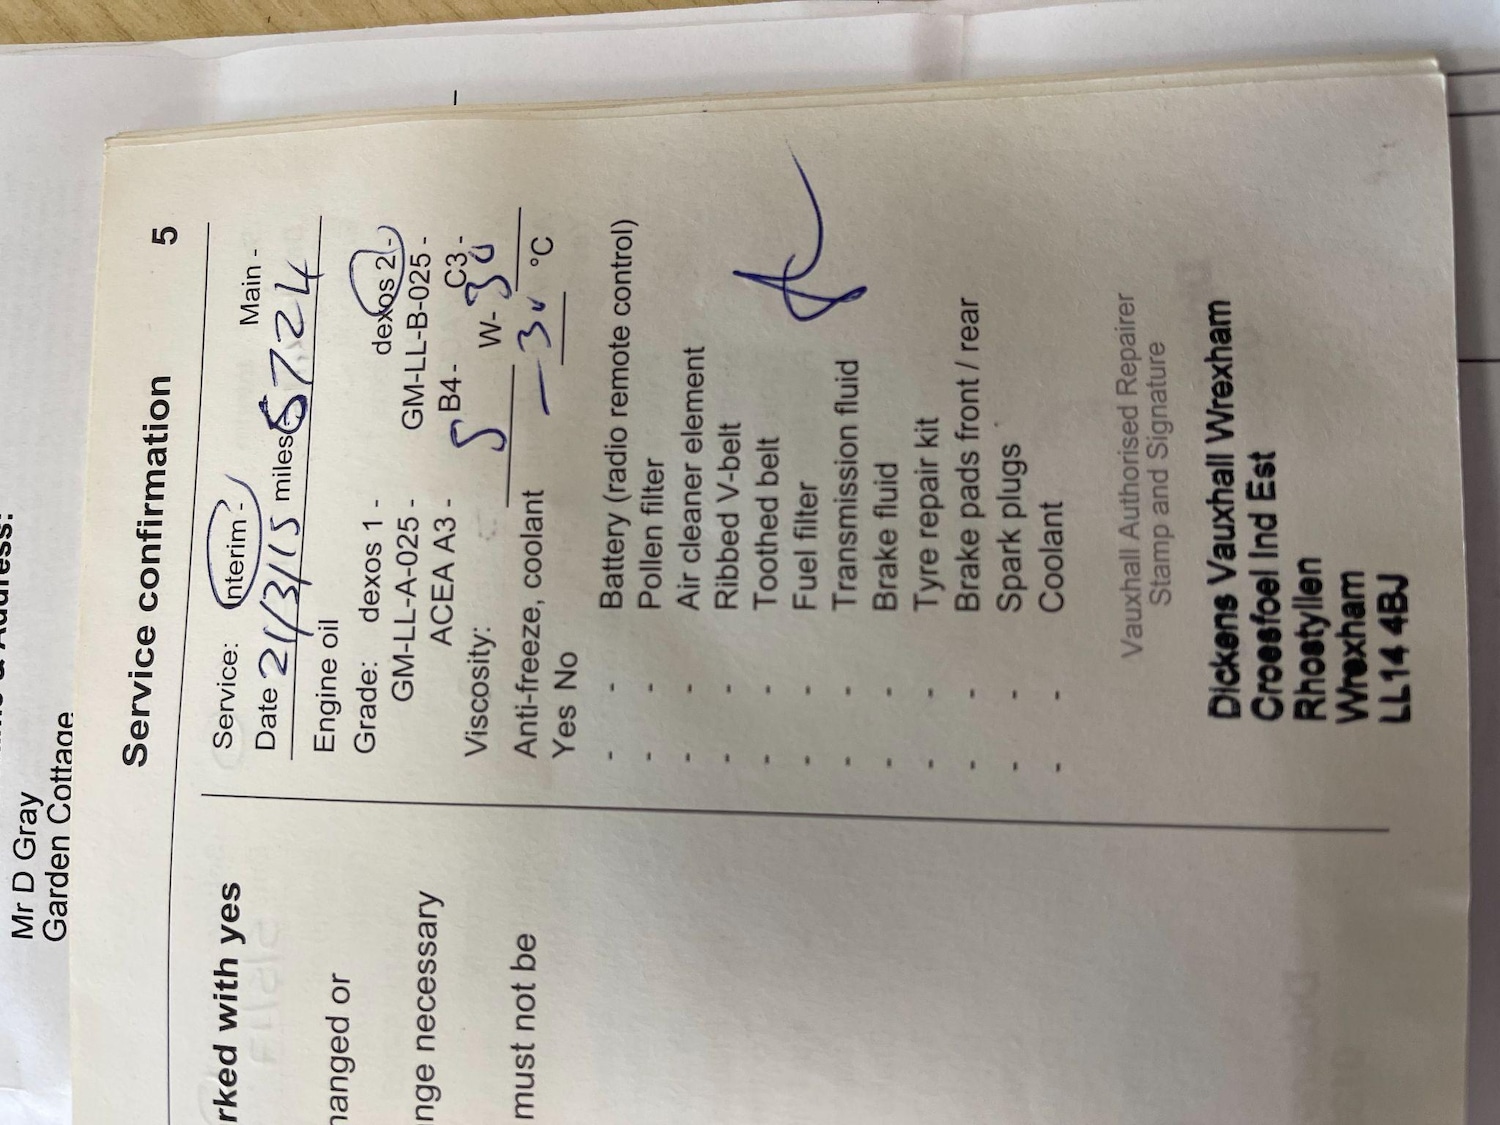 Mr D Gray
Garden Cottage
rked with yes
hanged or
nge necessary
must not be
Service confirmation 5
Service: Interim - Main -
Date 21/3/15 miles 6724
Engine oil
Grade: dexos 1 - dexos 2 -
GM-LL-A-025 - GM-LL-B-025 -
ACEA A3 - B4 - C3 -
Viscosity: 5 W- 30
Anti-freeze, coolant -30 °C
Yes No
- - Battery (radio remote control)
- - Pollen filter
- - Air cleaner element
- - Ribbed V-belt
- - Toothed belt
- - Fuel filter
- - Transmission fluid
- - Brake fluid
- - Tyre repair kit
- - Brake pads front / rear
- - Spark plugs
- - Coolant
Vauxhall Authorised Repairer
Stamp and Signature
Dickens Vauxhall Wrexham
Croesfoel Ind Est
Rhostyllen
Wrexham
LL14 4BJ